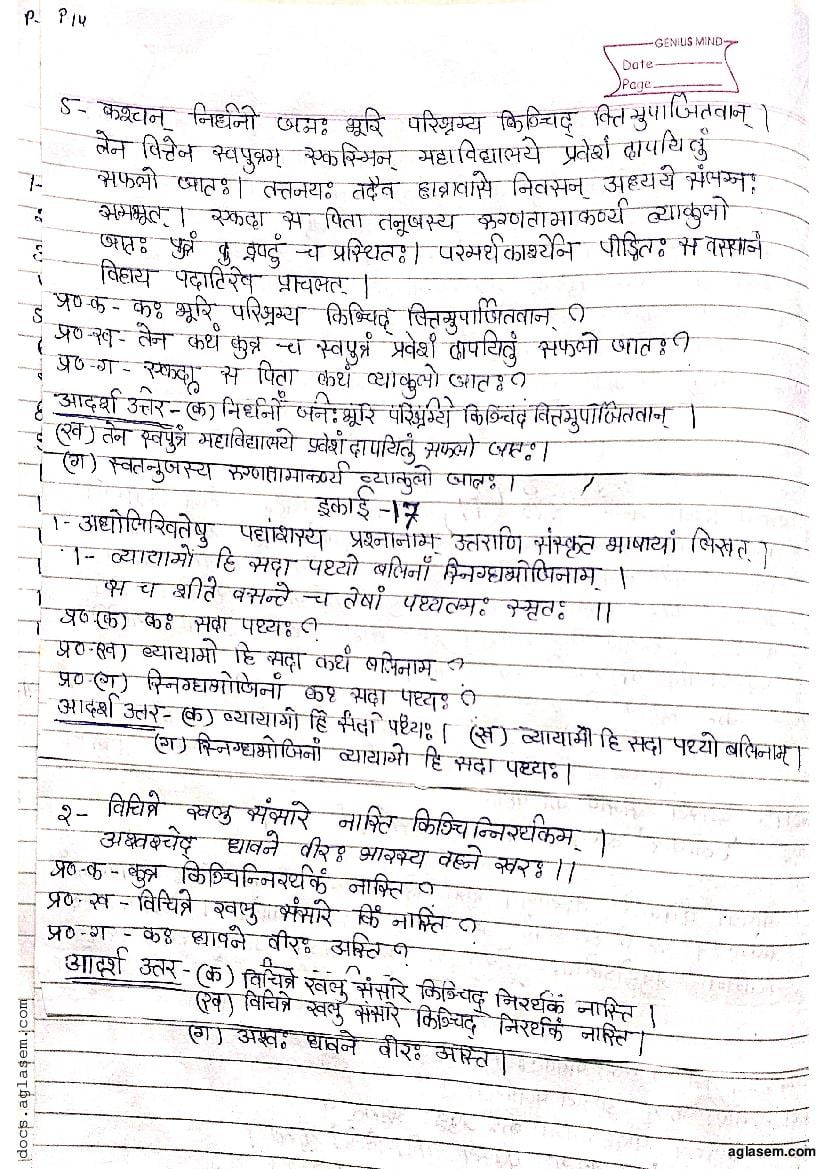 P- P 14
GENIUS MIND
Date
Page
5- कश्चन् निर्धनो जनः भूरि परिश्रम्य किञ्चिद् वित्तमुपार्जितवान् ।
तेन वित्तेन स्वपुत्रम् एकस्मिन् महाविद्यालये प्रवेशं दापयितुं
सफलो जातः। तत्तनयः तदैव छात्रावासे निवसन् अध्यये संलग्नः
समभूत् । एकदा स पिता तनूजस्य रुग्णतामाकर्ण्य व्याकुलो
जातः पुत्रं द्रष्टुं च प्रस्थितः। परमर्थकार्श्येन पीडितः स बसयानं
विहाय पदातिरेव प्राचलत् ।
प्र०-क - कः भूरि परिश्रम्य किञ्चिद् वित्तमुपार्जितवान् ?
प्र०-ख- तेन कथं कुत्र च स्वपुत्रं प्रवेशं दापयितुं सफलो जातः?
प्र०-ग - एकदा स पिता कथं व्याकुलो जातः?
आदर्श उत्तर- (क) निर्धनो जनः भूरि परिश्रम्ये किञ्चिद वित्तमुपार्जितवान् ।
(ख) तेन स्वपुत्रं महाविद्यालये प्रवेशं दापयितुं सफलो जातः।
(ग) स्वतनुजस्य रुग्णतामाकर्ण्य व्याकुलो जातः ।
इकाई -17
1- अधोलिखितेषु पद्यांशस्य प्रश्नानाम् उत्तराणि संस्कृत भाषायां लिखत् ।
1- व्यायामो हि सदा पथ्यो बलिनां स्निग्धभोजिनाम् ।
स च शीते वसन्ते च तेषां पथ्यतमः स्मृतः ॥
प्र०-(क) कः सदा पथ्यः ?
प्र०-(ख) व्यायामो हि सदा कथं बलिनाम् ?
प्र०-(ग) स्निग्धभोजिनां कः सदा पथ्यः ?
आदर्श उत्तर- (क) व्यायामो हि सदा पथ्यः। (ख) व्यायामो हि सदा पथ्यो बलिनाम्।
(ग) स्निग्धभोजिनां व्यायामो हि सदा पथ्यः।
२- विचित्रे खलु संसारे नास्ति किञ्चिन्निरर्थकम् ।
अश्वश्चेद् धावने वीरः भारस्य वहने खरः।।
प्र०-क - कुत्र किञ्चिन्निरर्थकं नास्ति ?
प्र०-ख - विचित्रे खलु संसारे किं नास्ति ?
प्र०-ग - कः धावने वीरः अस्ति ?
आदर्श उत्तर - (क) विचित्रे खलु संसारे किञ्चिद् निरर्थकं नास्ति ।
(ख) विचित्रे खलु संसारे किञ्चिद् निरर्थकं नास्ति ।
(ग) अश्वः धावने वीरः अस्ति ।
docs.aglasem.com
aglasem.com